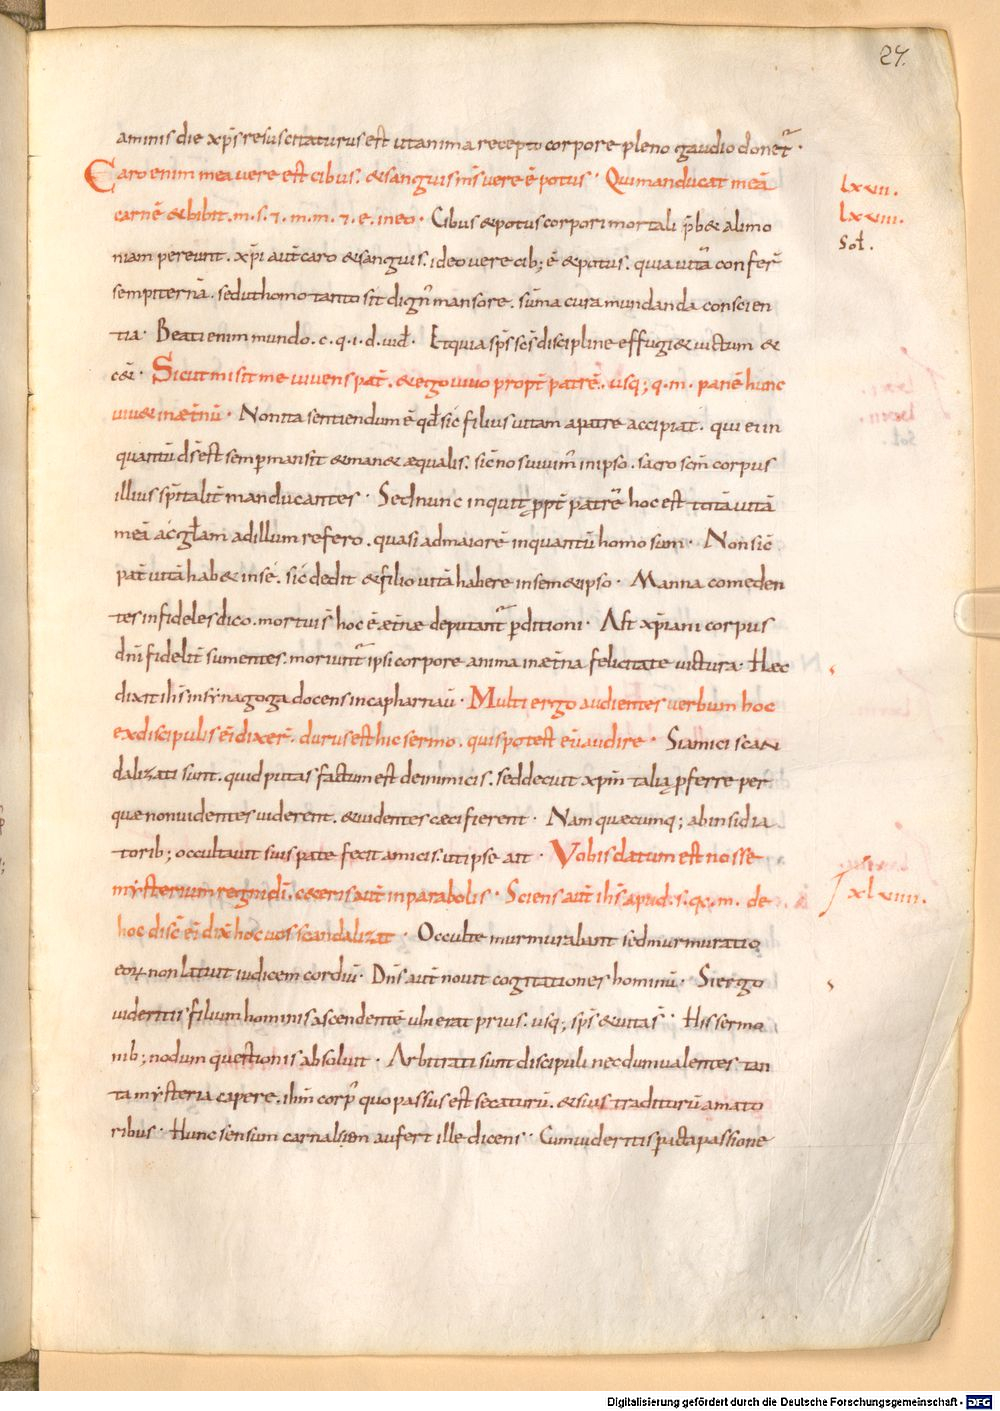 27.
aminis die xp̄s resuscitaturus est ut anima recepto corpore pleno gaudio donet᷑ ·
Caro enim mea vere est cibus. & sanguis m̄s vere ē potus · Qui manducat meā
lxvii.
carnē & bibit. m. s. ⁊. m. m. ⁊. e. in eo · Cibus & potus corpori mortali p̄b& alimo
lxviii.
niam pereunt. xp̄i aut̄ caro & sanguis. ideo vere cib; ē & potus. quia vitā confer̄
Sol̄.
sempiternā. sed ut homo tanto sit dign̄ mansore. sūma cura mundanda conscien
tia · Beati enim mundo. c. q. i. d. vid̄ · Et quia sp̄s sc̄s discipline effugi& victum &
c&̄ · Sicut misit me vivens pat̄. & ego vivo propt̄ patrē. usq; q. m. panē hunc
viv& in æt̄nū · Non ita sentiendum ē qd̄ sic filius vitam a patre accipiat. qui ei in
quantū d̄s est semp mansit & man& æqualis. sic nos vivim̄ in ipso. sacro sc̄m corpus
illius sp̄italit̄ manducantes · Sed nunc inquit ꝓpt̄ patrē hoc est totā vitā
meā ac gl̄am ad illum refero. quasi ad maiorē inquantū homo sum · Non sic
pat̄ vitā hab& in se. sic dedit & filio vitā habere in sem&ipso · Manna comeden
tes infideles dico. mortui s̄ hoc ē æt̄næ deputant᷑ ꝑditioni · Ast xp̄iani corpus
dn̄i fidelit̄ sumentes. moriunt᷑ ipsi corpore anima in æt̄na felicitate victura · Hæc
dixit ih̄s in synagoga docens in capharnaū · Multi ergo audientes verbum hoc
ex discipulis ei dixer̄. durus est hic sermo. quis potest eū audire · Si amici scan
dalizati sunt. quid putas factum est de inimicis. sed decuit xp̄m talia ꝓferre per
quæ non videntes viderent. & videntes cæci fierent · Nam quæcunq; ab insidia
torib; occultavit suis patefecit amicis. ut ipse ait · Vobis datum est nosse
mysterium regni dī. c&eris aut̄ in parabolis · Sciens aut̄ ih̄s apud. s. qc. m. de
xlviiii.
hoc disc̄ ei dix̄ hoc vos scandalizat · Occulte murmurabant sed murmuratio
eoꝝ non latuit iudicem cordiū · Dn̄s aut̄ novit cogitationes hominū · Si ergo
videritis filium hominis ascendentē ubi erat prius. usq; sp̄s & vita s̄ · His sermo
nib; nodum quęstionis absolvit · Arbitrati sunt discipuli necdum valentes tan
ta mysteria capere. ih̄m corp᷑ quo passus est secaturū. & suis traditurū amato
ribus · Hunc sensum carnalem aufert ille dicens · Cum videritis pacta passione
Digitalisierung gefördert durch die Deutsche Forschungsgemeinschaft - DFG